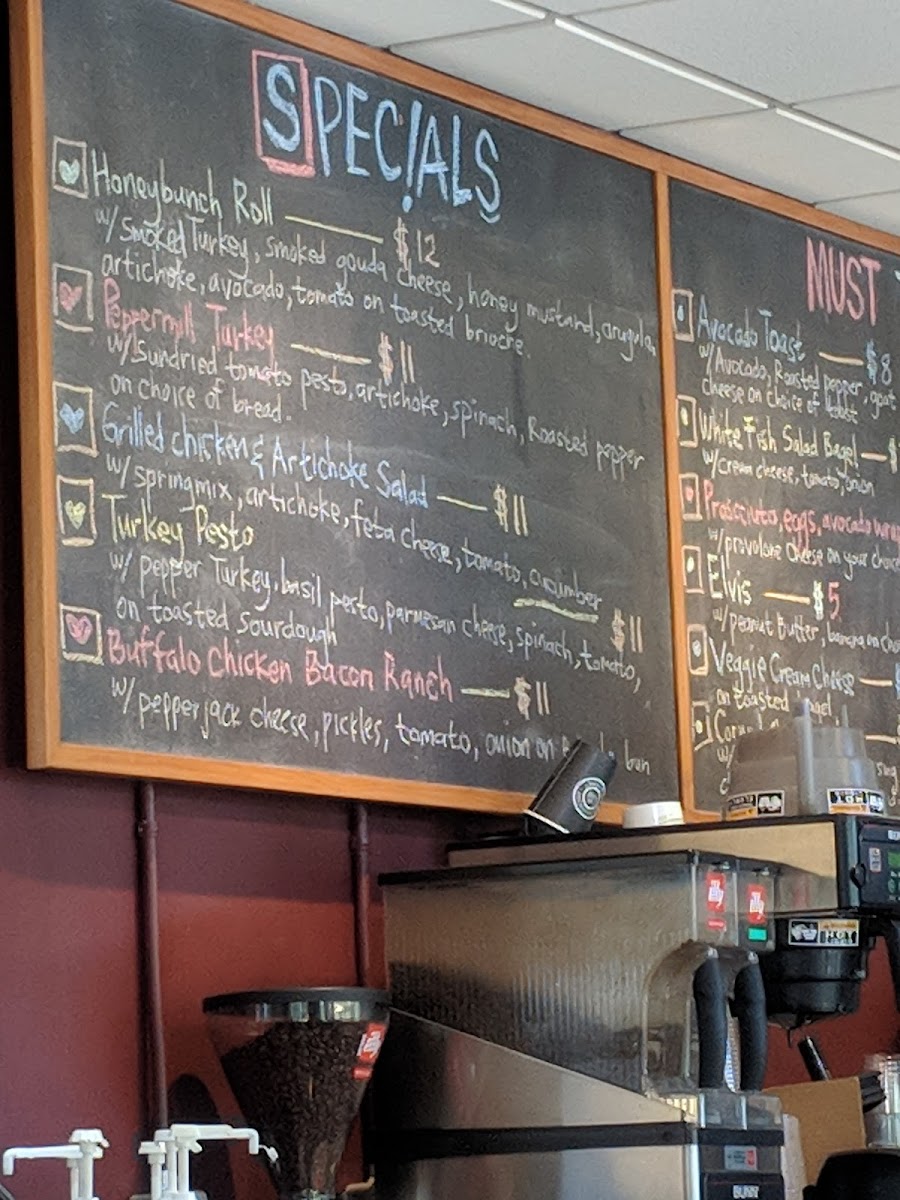 SPEC!ALS
Honeybunch Roll $12
w/Smoked Turkey, smoked gouda cheese, honey mustard, arugula,
artichoke, avocado, tomato on toasted brioche.
Peppermill Turkey $11
w/Sundried tomato pesto, artichoke, spinach, Roasted pepper
on choice of bread.
Grilled chicken & Artichoke Salad $11
w/springmix, artichoke, feta cheese, tomato, cucumber
Turkey Pesto $11
w/ pepper Turkey, basil pesto, parmesan cheese, spinach, tomato,
on toasted sourdough
Buffalo Chicken Bacon Ranch $11
w/pepperjack cheese, pickles, tomato, onion on bun
MUST
Avocado Toast $8
w/Avocado, Roasted pepper, goat
cheese on choice of toast
White Fish Salad Bagel $
w/cream cheese, tomato, onion
Prosciutto, eggs, avocado
w/provolone cheese on your
Elvis $5
w/peanut Butter, banana on
Veggie Cream Cheese
on toasted bagel
w/
illy
illy
HOT
HOT
BUNN